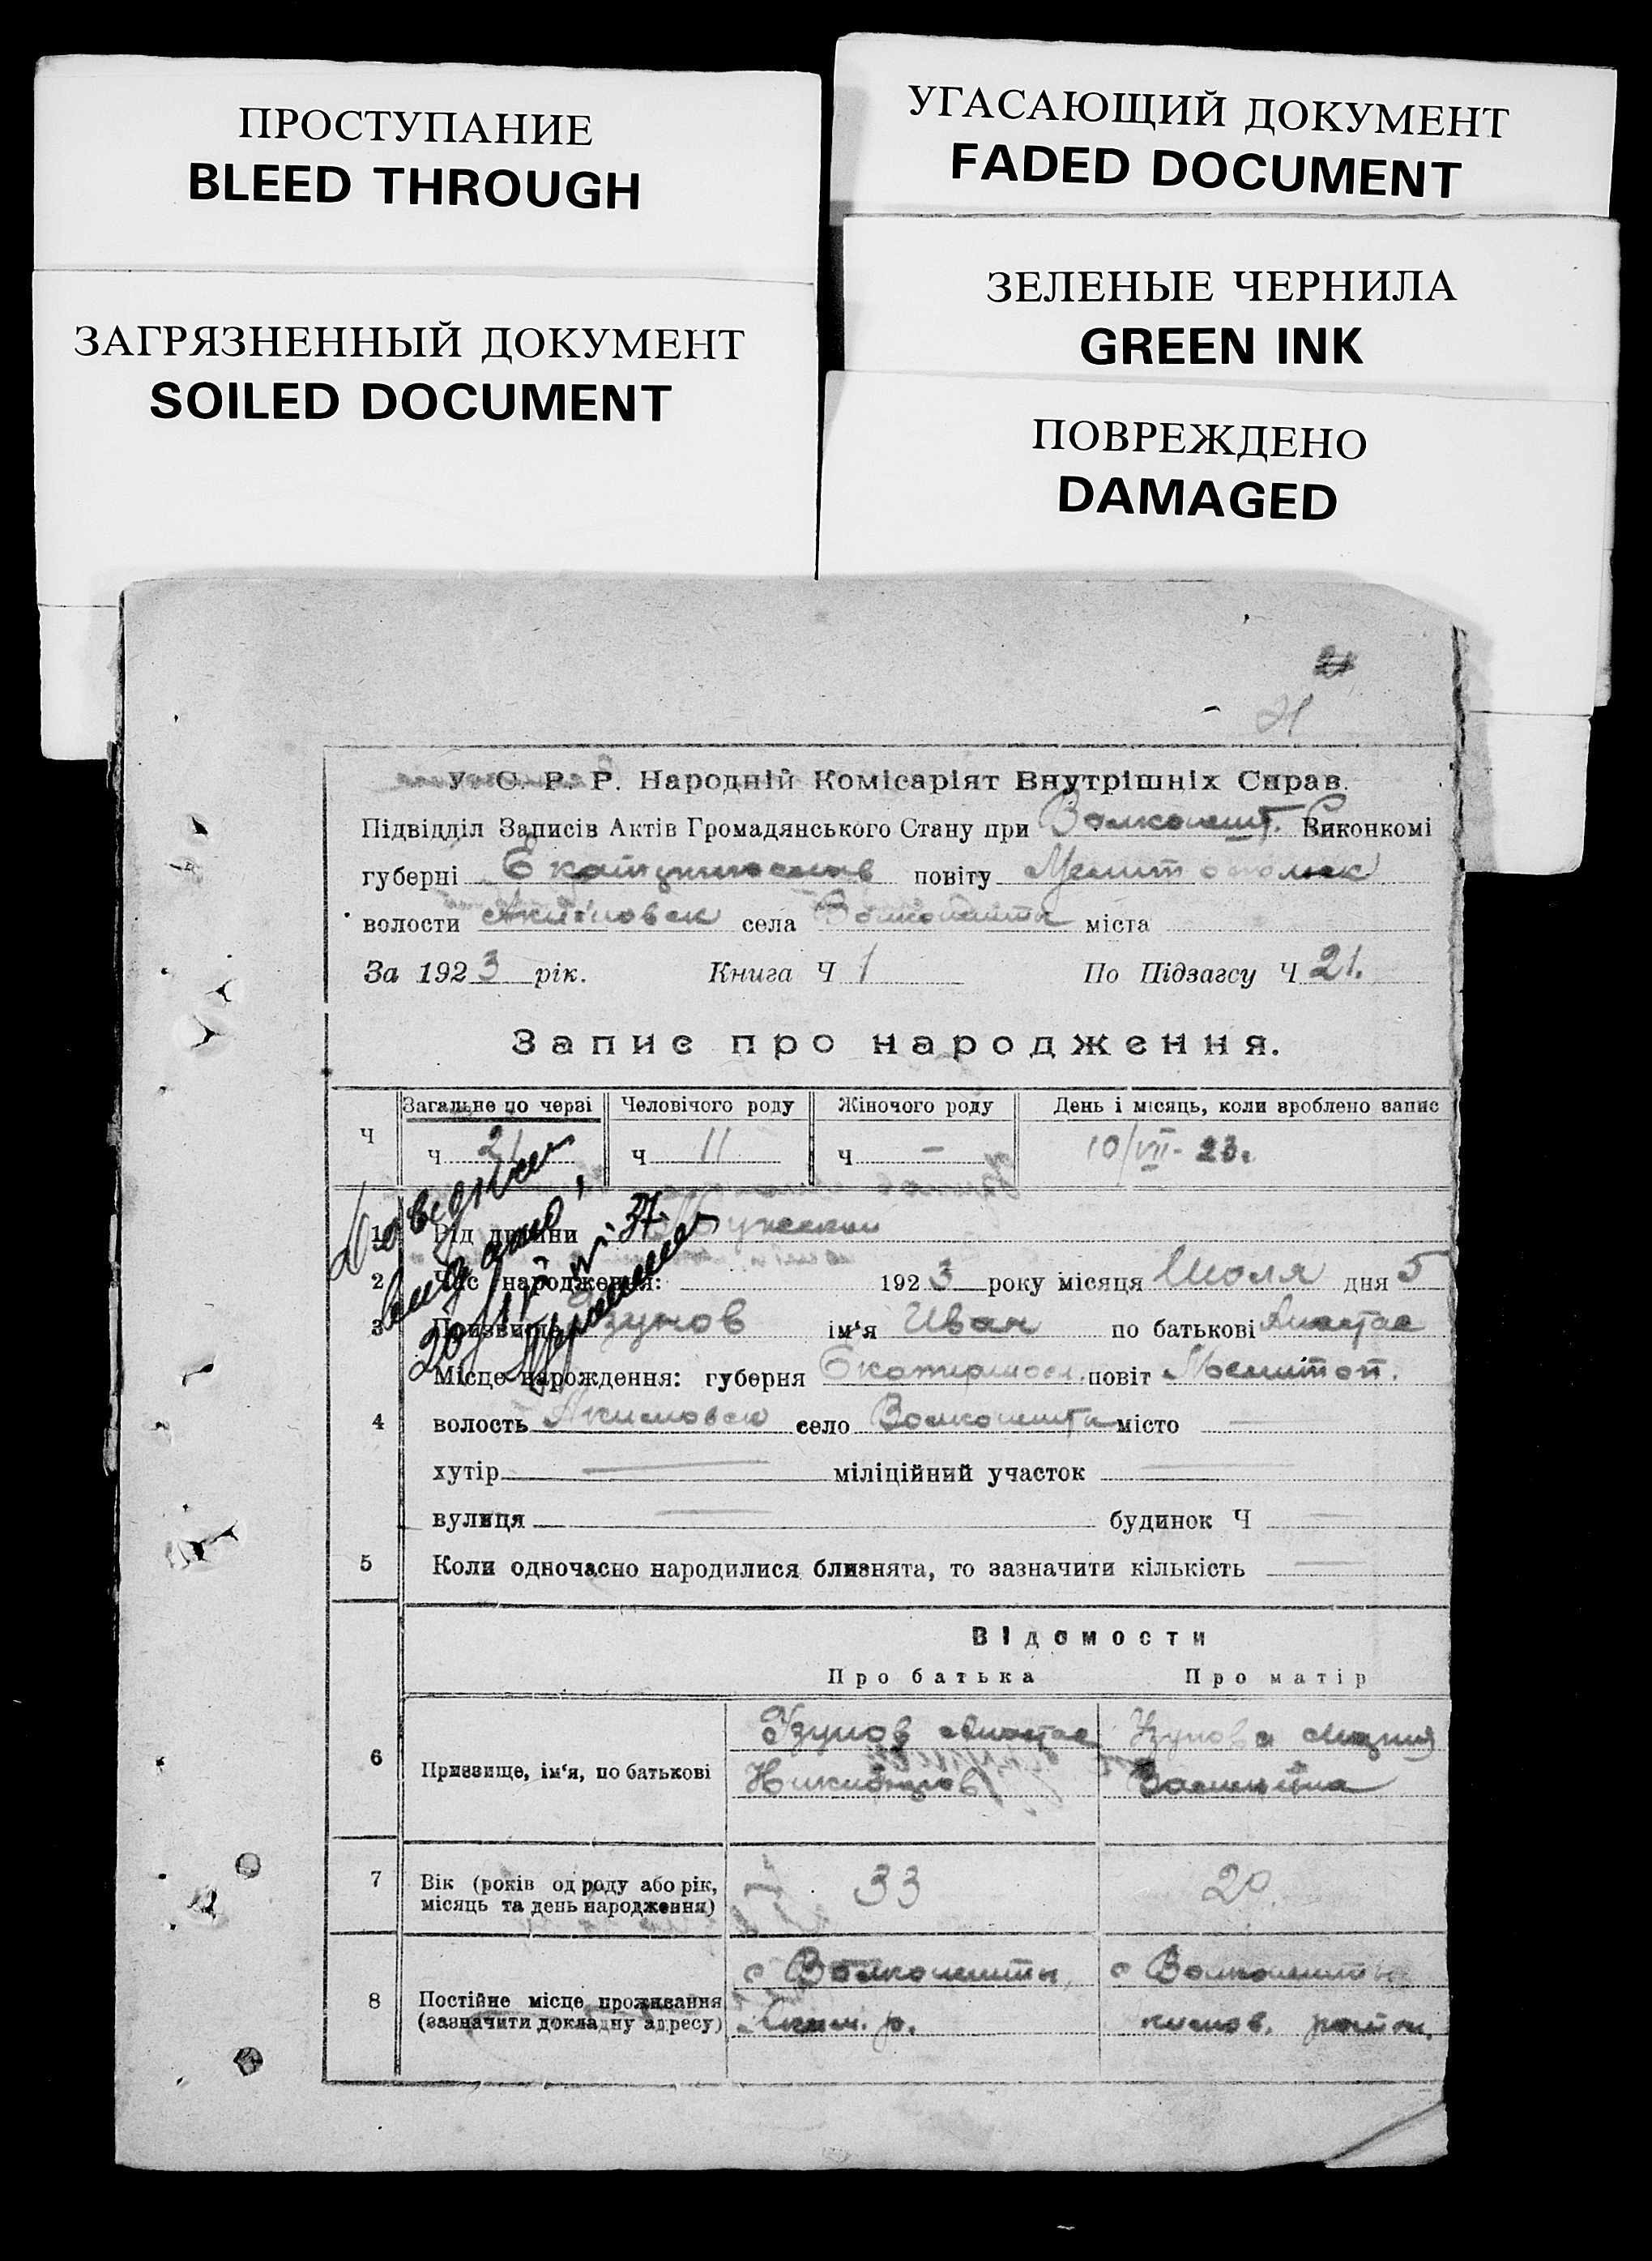 ПРОСТУПАНИЕ
BLEED THROUGH
ЗАГРЯЗНЕННЫЙ ДОКУМЕНТ
SOILED DOCUMENT
УГАСАЮЩИЙ ДОКУМЕНТ
FADED DOCUMENT
ЗЕЛЕНЫЕ ЧЕРНИЛА
GREEN INK
ПОВРЕЖДЕНО
DAMAGED
21
У. С. Р. Р. Народній Комісаріят Внутрішніх Справ.
Підвідділ Записів Актів Громадянського Стану при Волконешт. Виконкомі
губерні повіту
волости Акимовск села Волконешты міста
За 1923 рік. Книга Ч 1 По Підзагсу Ч 21.
Запис про народження.
Ч Загальне по черзі Человічого роду Жіночого роду День і місяць, коли зроблено запис
ч 21 ч 11 ч — 10/VII-23г
1 Рід дитини Мужской
2 Час народження: 1923 року місяця Июля дня 5
3 Призвище Узунов ім‘я Иван по батькові Анастас
Місце нарождення: губерня Екатеринос. повіт Мелитоп.
4 волость Акимовск село Волконешты місто —
хутір — міліційний участок —
вулиця — будинок Ч —
5 Коли одночасно народилися близнята, то зазначити кількість —
Відомости
Про батька Про матір
6 Призвище, ім‘я, по батькові
Узунов Анастас Узунова Мария
Никифоров
7 Вік (років од роду або рік, місяць та день народження) 33 20
8 Постійне місце проживання (зазначити докладну адресу)
с Волконешты, с Волконешты
Аким. р. кимов. район.